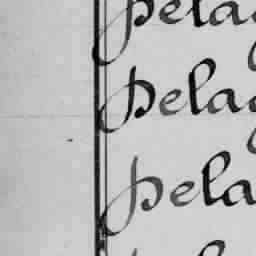 pelag
pelag
pela